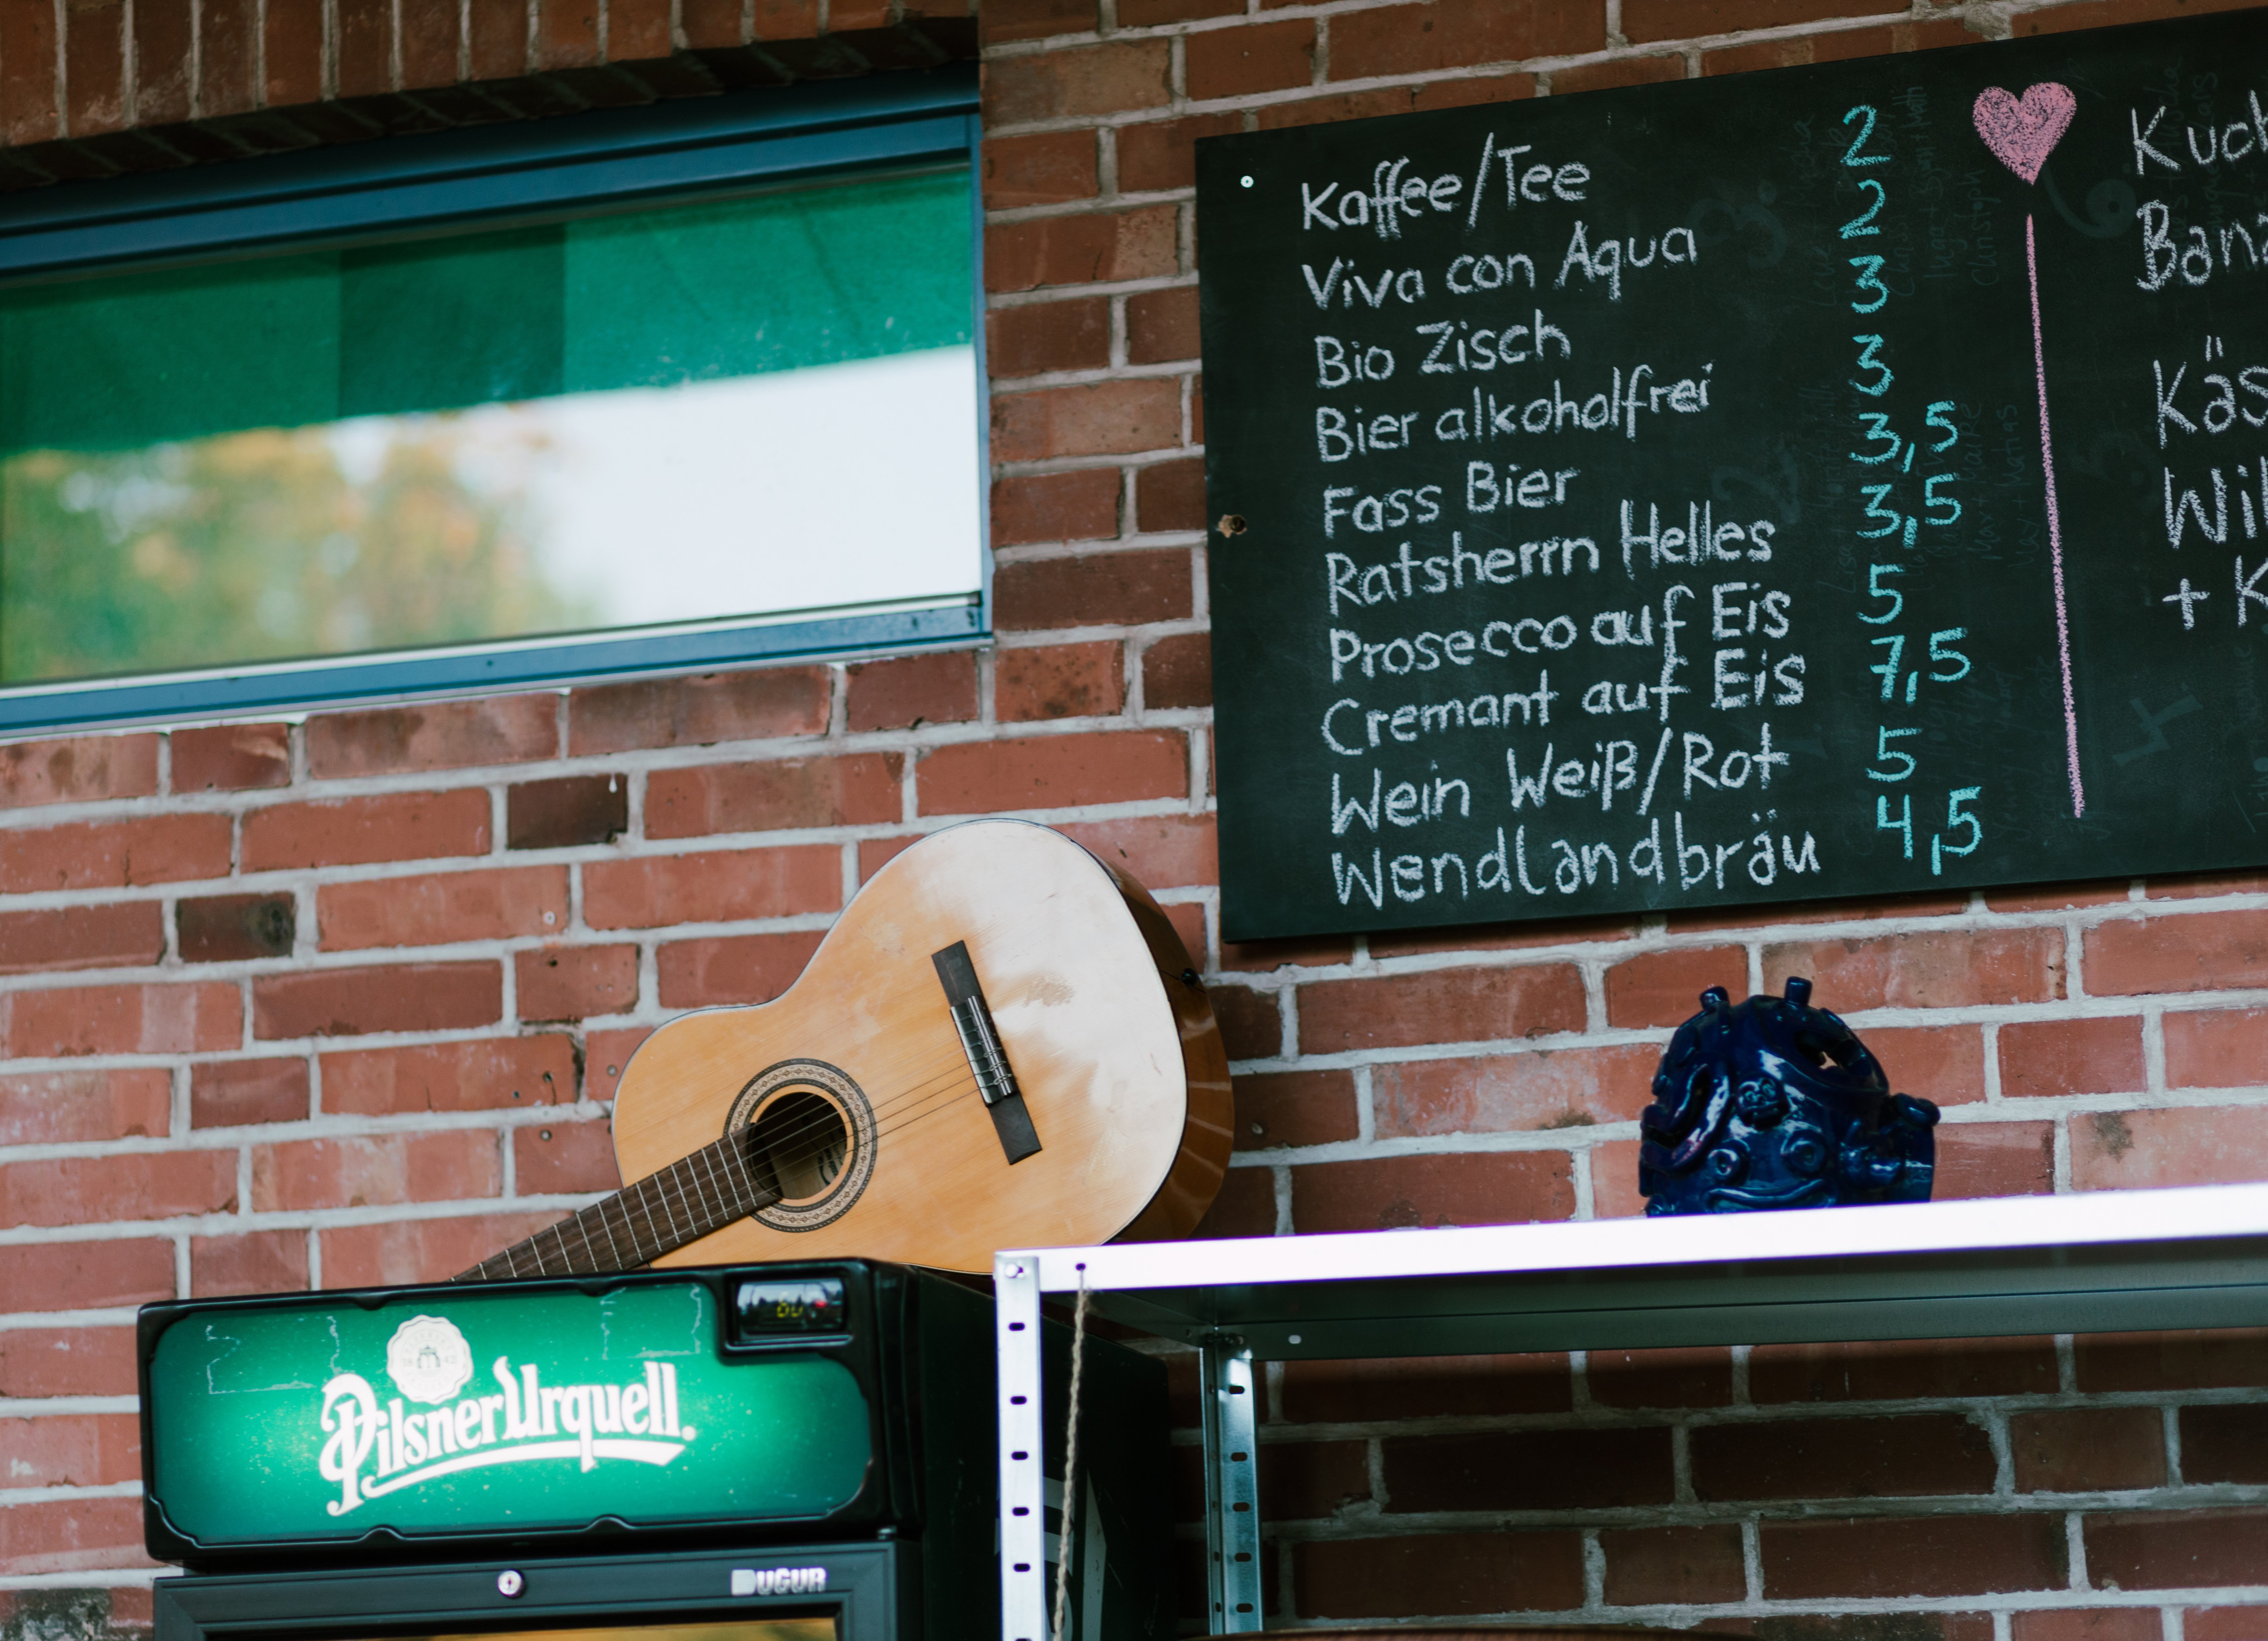 Kaffee/Tee 2
Viva con Aqua 2
Bio Zisch 3
Bier alkoholfrei 3
Fass Bier 3,5
Ratsherrn Helles 3,5
Prosecco auf Eis 5
Cremant auf Eis 7,5
Wein Weiß/Rot 5
Wendlandbräu 4,5
Kuch
Ban
Käs
Wil
+ K
Pilsner Urquell
UGUR